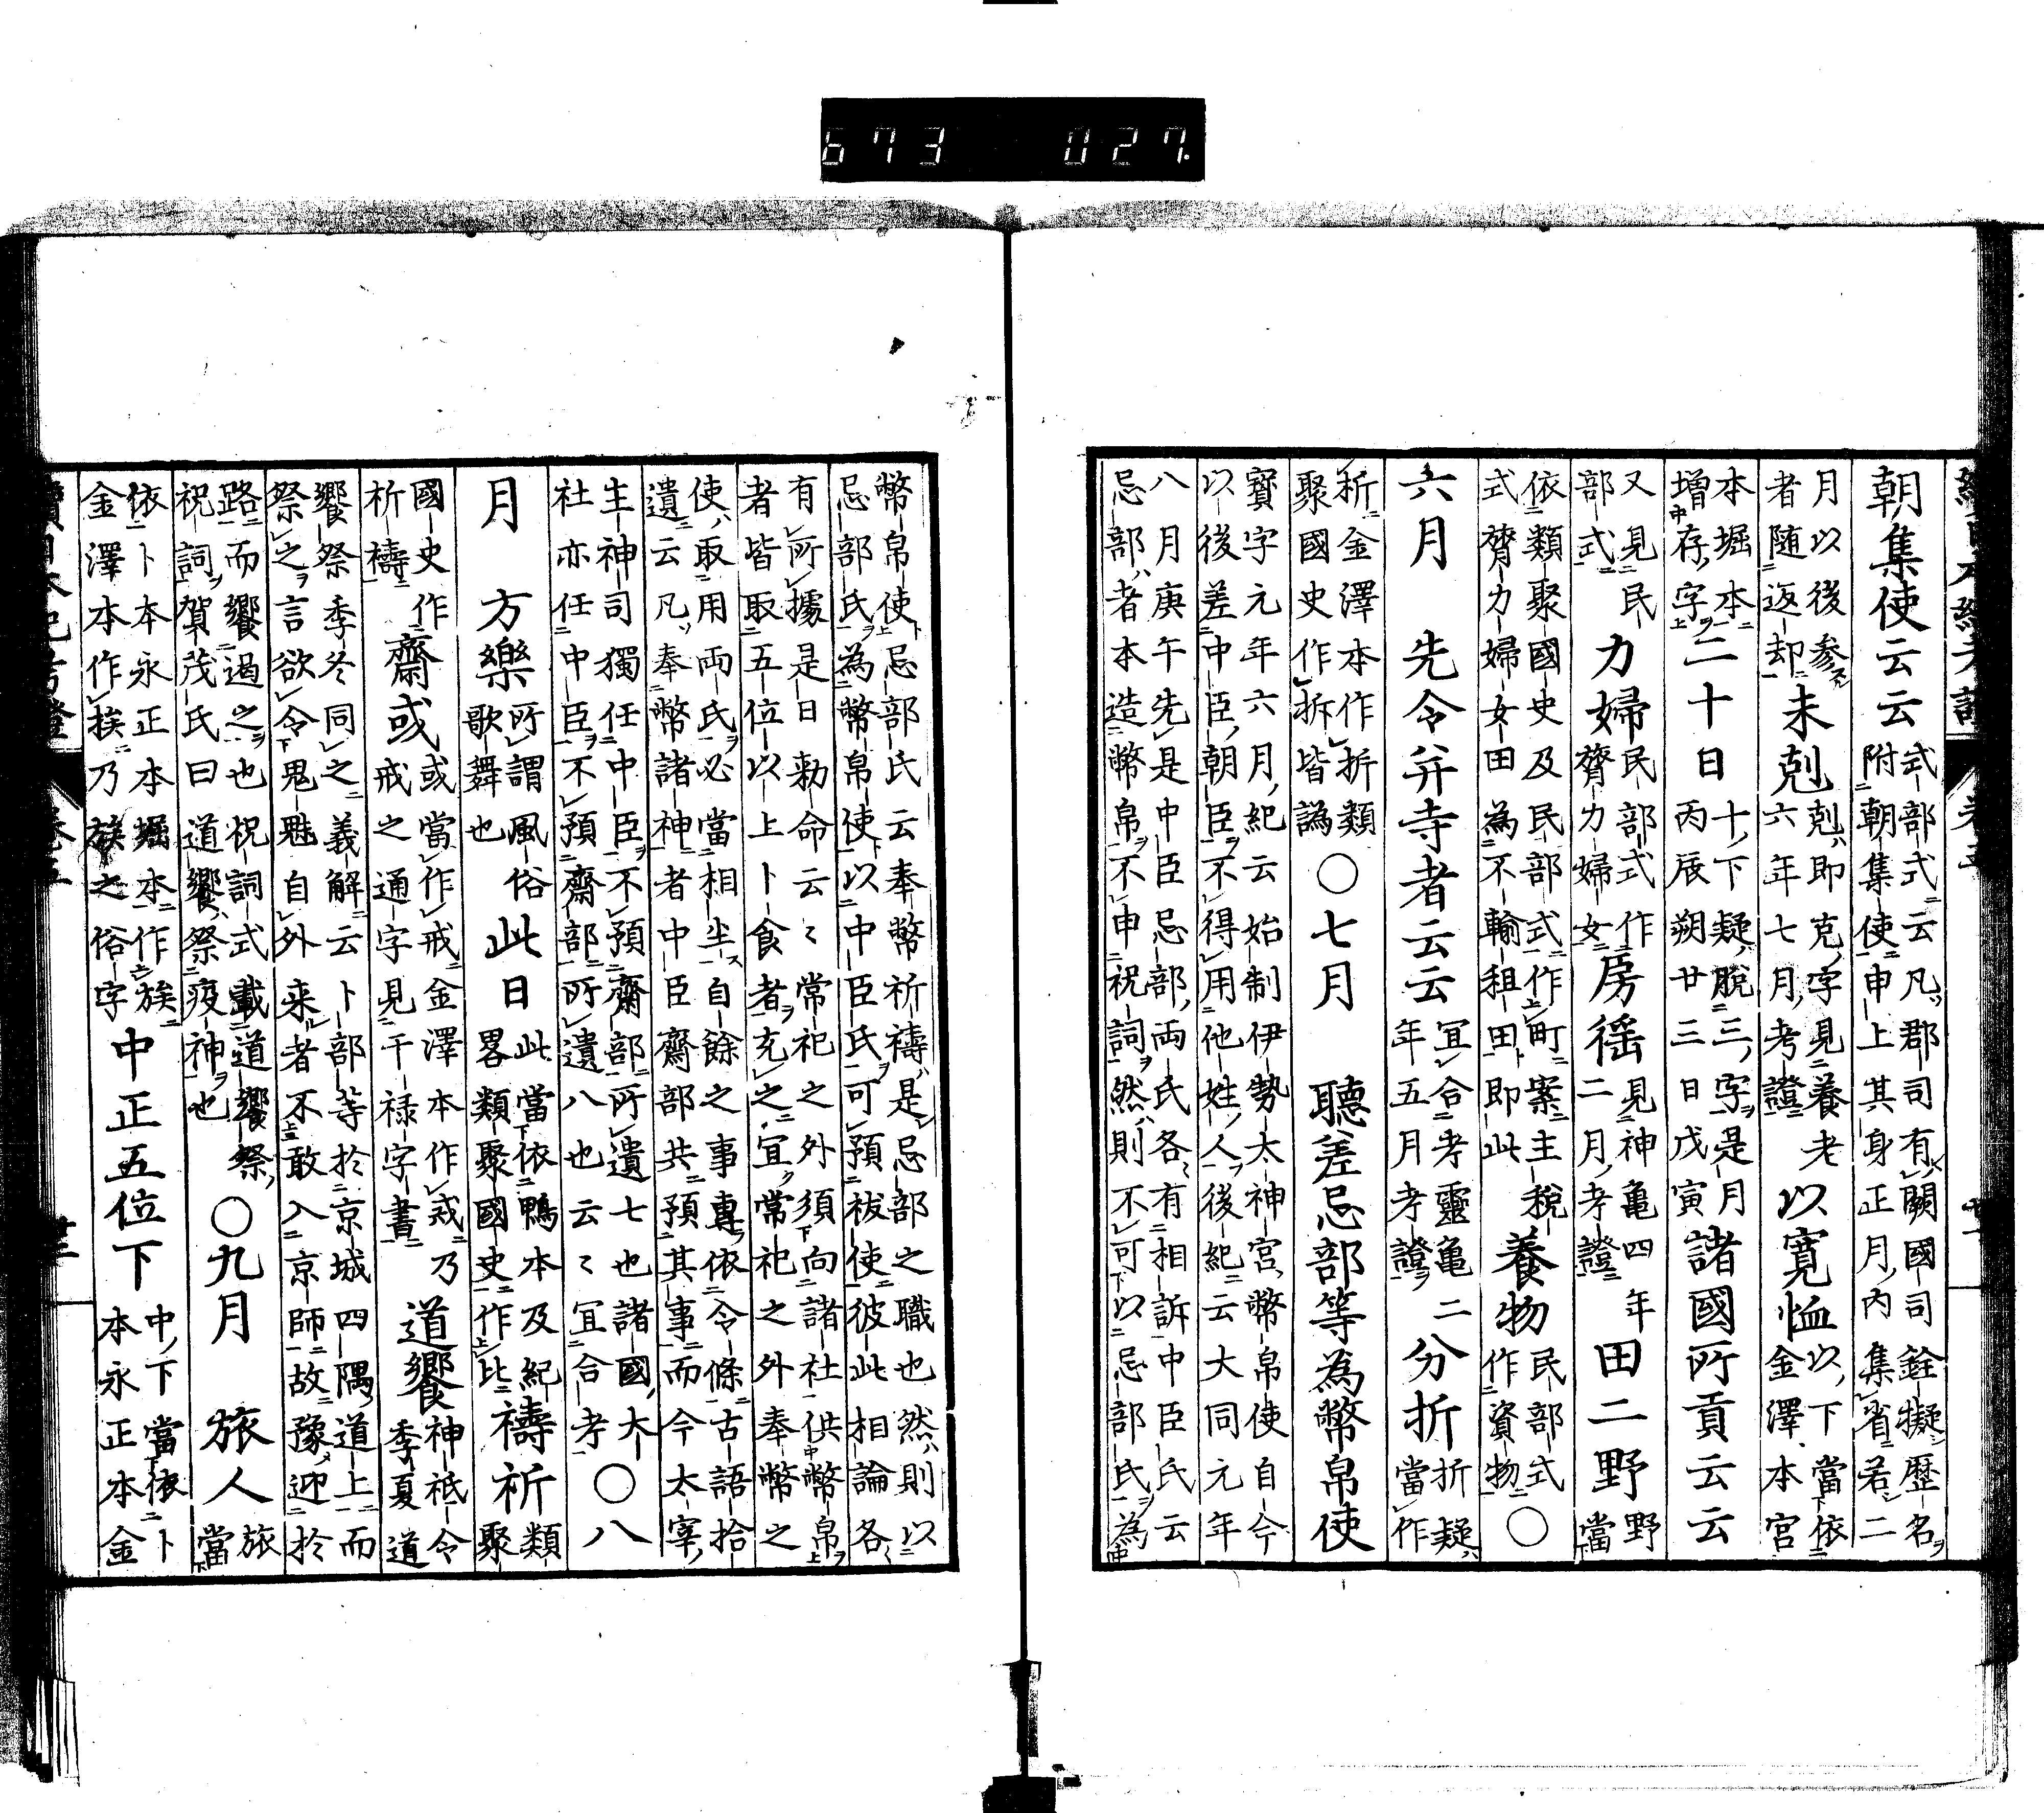 朝集使云云式部式云凡郡司有闕國司銓擬歴名附朝集使申上其身正月內集省若二
月以後參者随返却未剋剋即克字見養老六年七月考證以寛恤以下當依金澤本宮
本堀本增存字二十日十下疑脫三字是月丙辰朔廿三日戊寅諸國所貢云云
又見民部式力婦民部式作膂力婦女房徭見神亀四年二月考證田二野野當
依類聚國史及民部式作町案主税式膂力婦女田為不輸租田即此養物民部式作資物○
六月　先令并寺者云云宜合考靈亀二年五月考證分折折疑當作
析金澤本作折類聚國史作拆皆譌○七月　聽差忌部等為幣帛使
寳字元年六月紀云始制伊勢太神宮幣帛使自今
以後差中臣朝臣不得用他姓人後紀云大同元年
八月庚午先是中臣忌部兩氏各有相訴中臣氏云
忌部者本造幣帛不申祝詞然則不可以忌部氏為
幣帛使忌部氏云奉幣祈禱是忌部之職也然則以
忌部氏為幣帛使以中臣氏可預祓使彼此相論各
有所據是日勅命云〻常祀之外須向諸社供幣帛
者皆取五位以上卜食者充之宜常祀之外奉幣之
使取用兩氏必當相半自餘之事專依令條古語拾
遺云凡奉幣諸神者中臣齋部共預其事而今太宰
主神司獨任中臣不預齋部所遺七也諸國大
社亦任中臣不預齋部所遺八也云〻宜合考○八
月　方樂所謂風俗歌舞也此日此當依鴨本及紀畧類聚國史作比禱祈類聚
國史作祈禱齋或或當作戒金澤本作戎乃戒之通字見干禄字書道饗神祇令季夏道
饗祭季冬同之義解云卜部等於京城四隅道上而
祭之言欲令鬼魅自外来者不敢入京師故豫迎於
路而饗遏之也祝詞式載道饗祭
祝詞賀茂氏曰道饗祭疫神也○九月　旅人旅當
依卜本永正本堀本作族金澤本作挨乃族之俗字中正五位下中下當依卜本永正本金